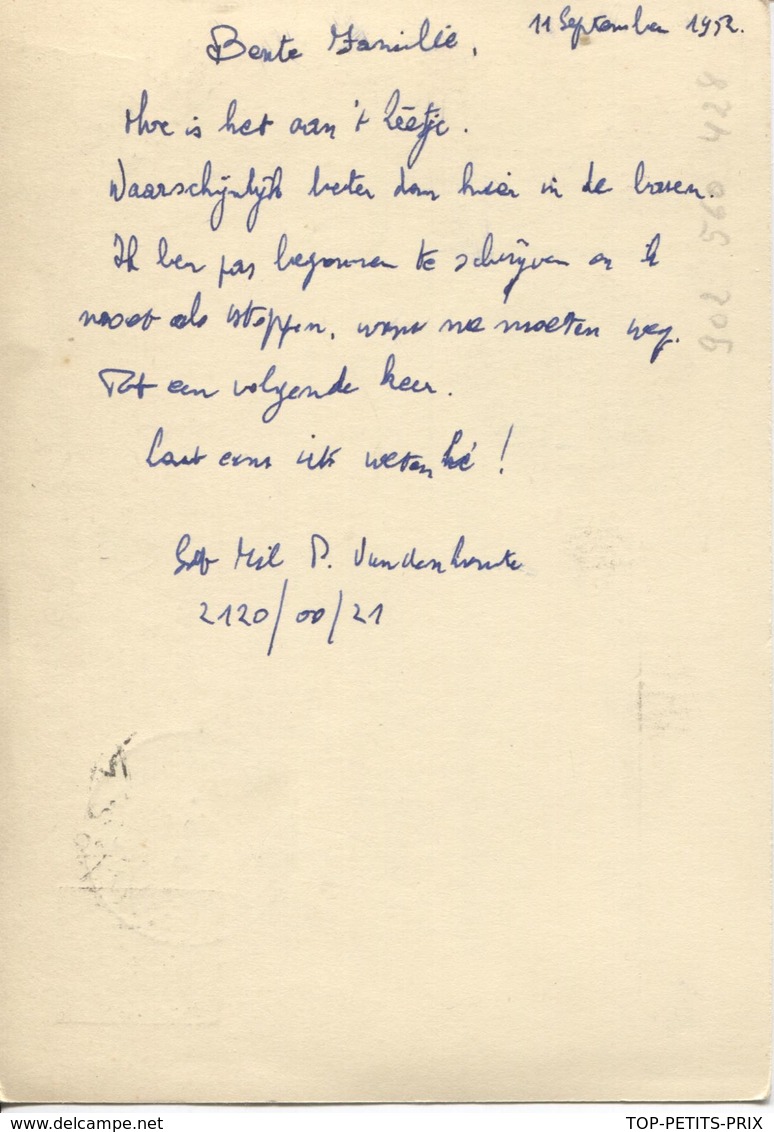 11 September 1952.
Beste Familie,
Hoe is het aan 't Leetje.
Waarschijnlijk beter dan hier in de
Ik ben pas begonnen te schrijven en ik
moet al stoppen, want we moeten weg.
Tot een volgende keer.
Laat eens iets weten hé!
Sdt Mil P. Vandenhoute
2120/00/21
902 560 428
www.delcampe.net
TOP-PETITS-PRIX